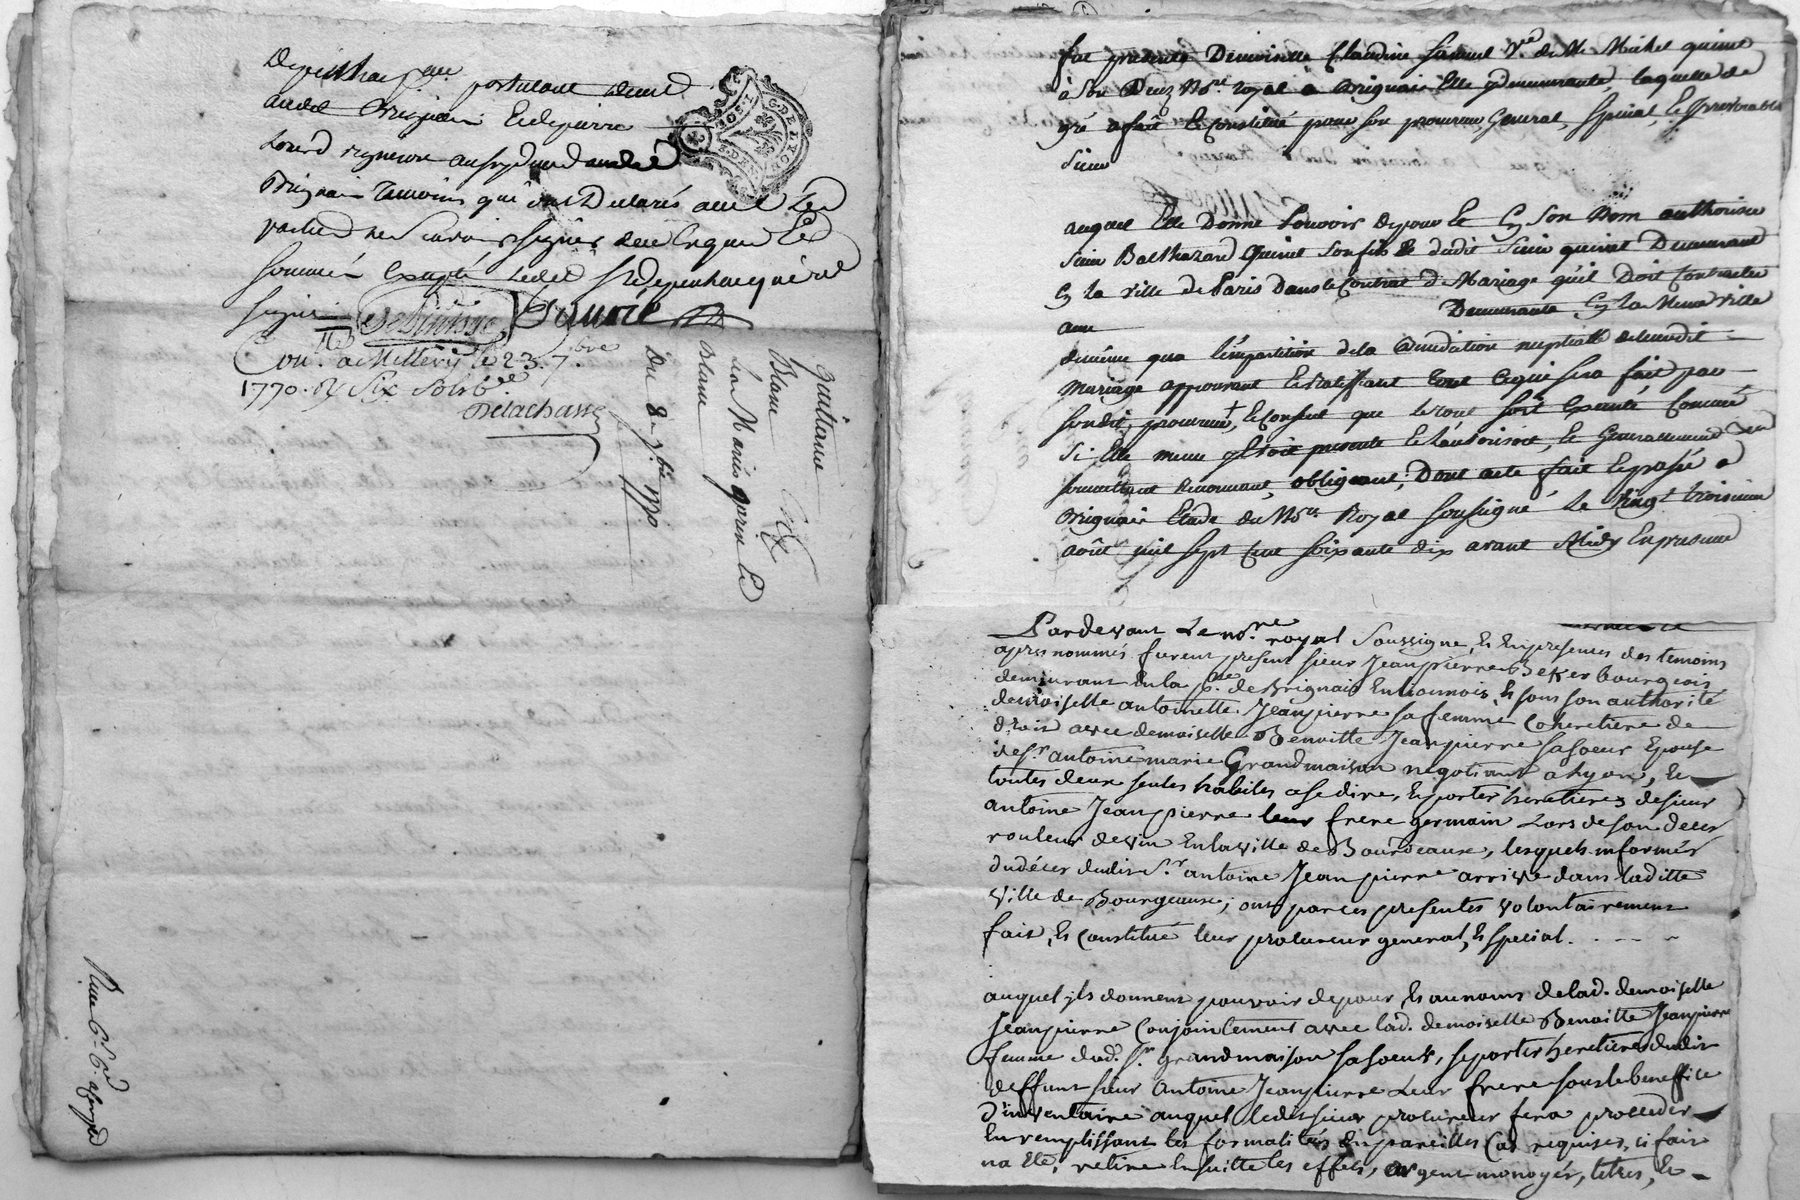 portulant
audit Brignais Et de pierre
Brignais temoins qui ont Declarés avec Les
parties ne savoir signer de ce Enquis Et
sommés Excepté ledit Sr
signé
Con.lé a Millery le 23. 7.bre
1770. Rx Six Sols
Delachasse
quittance
Blanc
les Mariés Goiron Et
Blanc
Du 8e 7bre 1770
fut presente Demoiselle Claudine Ve de Me Michel quinet
à Son Vivant Nore royal a Brignais Elle y demeurante, laquelle de
gré a fait Et Constitué pour son procureur General, Special, Et irrevocable
Sieur
auquel Elle Donne Pouvoir de pour Et En Son Nom authoriser
Sieur Balthazard Quinet Son fils Et dudit Sieur quinet Demeurant
En la Ville de Paris Dans le Contrat De Mariage qu'il Doit Contracter
avec Demeurante En la Meme Ville
de meme que l'impartition de la Benediction nuptialle dudit
Mariage approuvant Et Ratiffiant tout Ce qui sera fait par
Sondit procureur, Et Consent que le tout soit Executé Comme
Si Elle meme y Etoit presente Et l'authorisoit, Et Generallement
soumettant renonceant, obligeant; Dont acte fait Et passé a
Brignais Etude du Nore Royal Soussigné Le Vingt troisieme
août mil Sept Cent Soixante dix avant Midy En presence
Pardevant Le no.re royal Soussigné, Et En presence des temoins
apres nommés furent present sieur Jeanpierre Beker bourgeois
demeurant En la p.sse de Brignais En Lionnois Et sous son authorité
demoiselle antoinette Jeanpierre sa femme Coheretiere de
droit avec demoiselle Benoitte Jeanpierre sa soeur Epouse
de Sr antoine marie Grandmaison negotiant a Lyon, Et
toutes deux seules habiles a se dire, Et porter heretieres de sieur
antoine Jeanpierre leur frere germain Lors de son deces
rouleur de vin En la Ville de Bourdeaux, lesquels informés
du déces dudit Sr antoine Jeanpierre arrivé dans laditte
Ville de Bourgeaux, ont par ces presentes volontairement
fait, Et Constitué leur procureur general, Et special. . - - -
auquel ils donnent pouvoir de pour Et au noms de lad. demoiselle
Jeanpierre Conjointement avec lad. demoiselle Benoitte Jeanpierre
femme dud. Sr grandmaison sa soeur, se porter heretieres dudit
deffunt sieur Antoine Jeanpierre Leur frere sous le beneffice
d'inventaire auquel ledit sieur procureur fera proceder
En remplissant les formalités En pareilles Cas requises, si fait
na Eté, retire Ensuitte les effets, argent monoyés, titres, Et